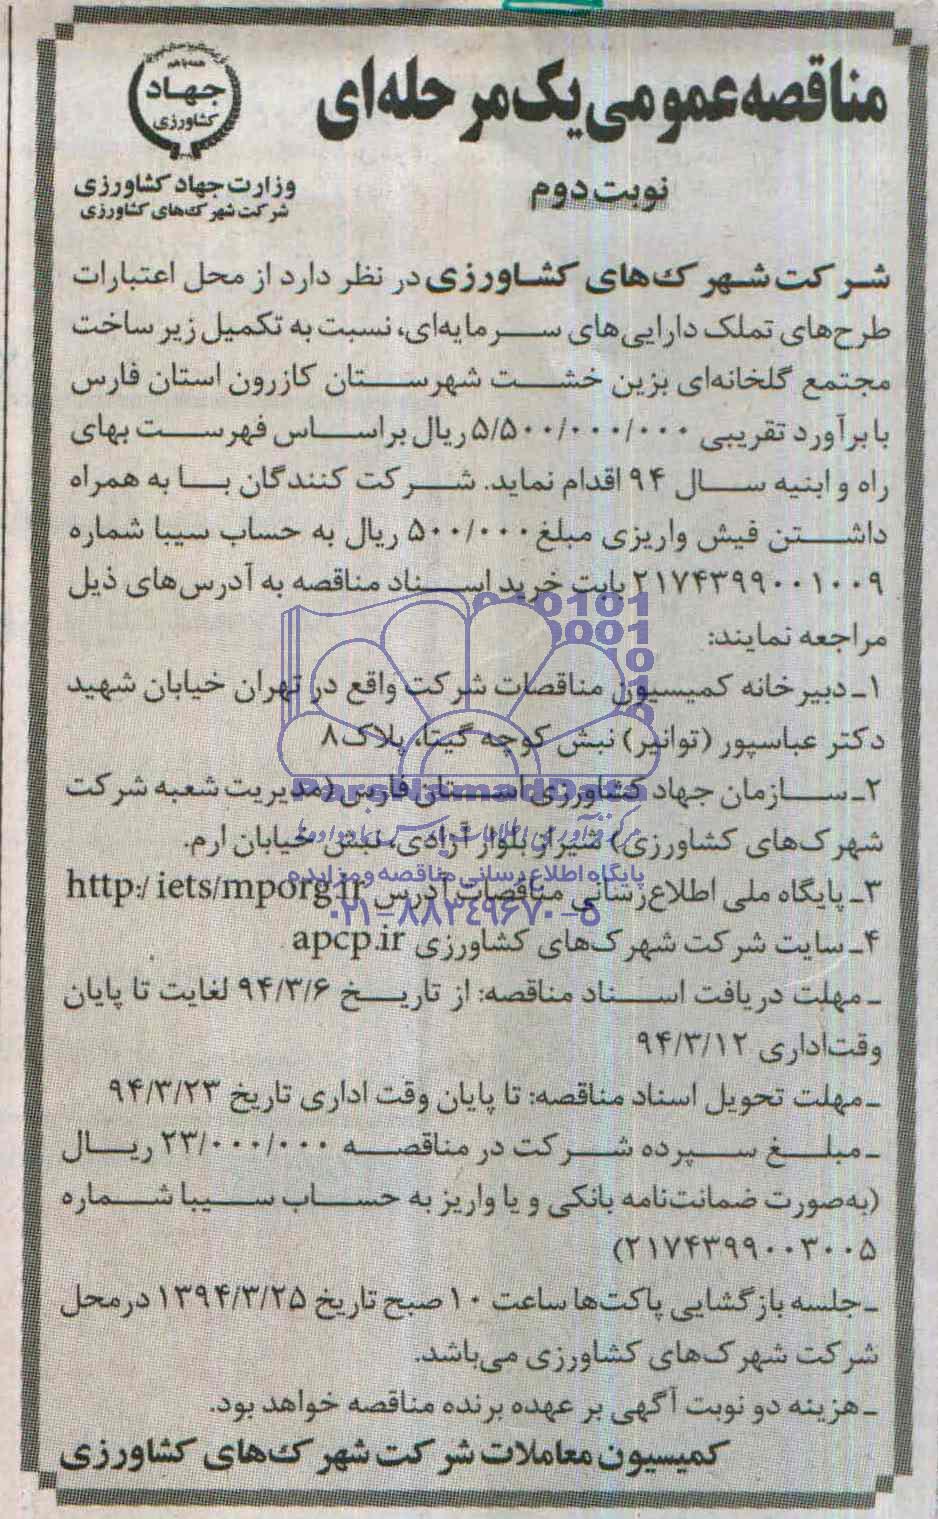 مناقصه عمومی یک مرحله‌ای
نوبت دوم
همه با هم
جهاد
کشاورزی
وزارت جهاد کشاورزی
شرکت شهرک‌های کشاورزی
شرکت شهرک‌های کشاورزی در نظر دارد از محل اعتبارات
طرح‌های تملک دارایی‌های سرمایه‌ای، نسبت به تکمیل زیر ساخت
مجتمع گلخانه‌ای بزین خشت شهرستان کازرون استان فارس
با برآورد تقریبی ۵/۵۰۰/۰۰۰/۰۰۰ ریال براساس فهرست بهای
راه و ابنیه سال ۹۴ اقدام نماید. شرکت کنندگان با به همراه
داشتن فیش واریزی مبلغ ۵۰۰/۰۰۰ ریال به حساب سیبا شماره
۲۱۷۴۳۹۹۰۰۱۰۰۹ بابت خرید اسناد مناقصه به آدرس‌های ذیل
مراجعه نمایند:
۱ـ دبیرخانه کمیسیون مناقصات شرکت واقع در تهران خیابان شهید
دکتر عباسپور (توانیر) نبش کوچه گیتا، پلاک ۸
۲ـ سازمان جهاد کشاورزی استان فارس (مدیریت شعبه شرکت
شهرک‌های کشاورزی) شیراز بلوار آزادی، نبش خیابان ارم.
۳ـ پایگاه ملی اطلاع‌رسانی مناقصات آدرس http:/ iets/mporg.ir
۴ـ سایت شرکت شهرک‌های کشاورزی apcp.ir
ـ مهلت دریافت اسناد مناقصه: از تاریخ ۹۴/۳/۶ لغایت تا پایان
وقت‌اداری ۹۴/۳/۱۲
ـ مهلت تحویل اسناد مناقصه: تا پایان وقت اداری تاریخ ۹۴/۳/۲۳
ـ مبلغ سپرده شرکت در مناقصه ۲۳/۰۰۰/۰۰۰ ریال
(به‌صورت ضمانت‌نامه بانکی و یا واریز به حساب سیبا شماره
۲۱۷۴۳۹۹۰۰۳۰۰۵)
ـ جلسه بازگشایی پاکت‌ها ساعت ۱۰ صبح تاریخ ۱۳۹۴/۳/۲۵ در محل
شرکت شهرک‌های کشاورزی می‌باشد.
ـ هزینه دو نوبت آگهی بر عهده برنده مناقصه خواهد بود.
کمیسیون معاملات شرکت شهرک‌های کشاورزی
ParsNamadData
پایگاه اطلاع رسانی مناقصه و مزایده
۰۲۱-۸۸۳۴۹۶۷۰-۵